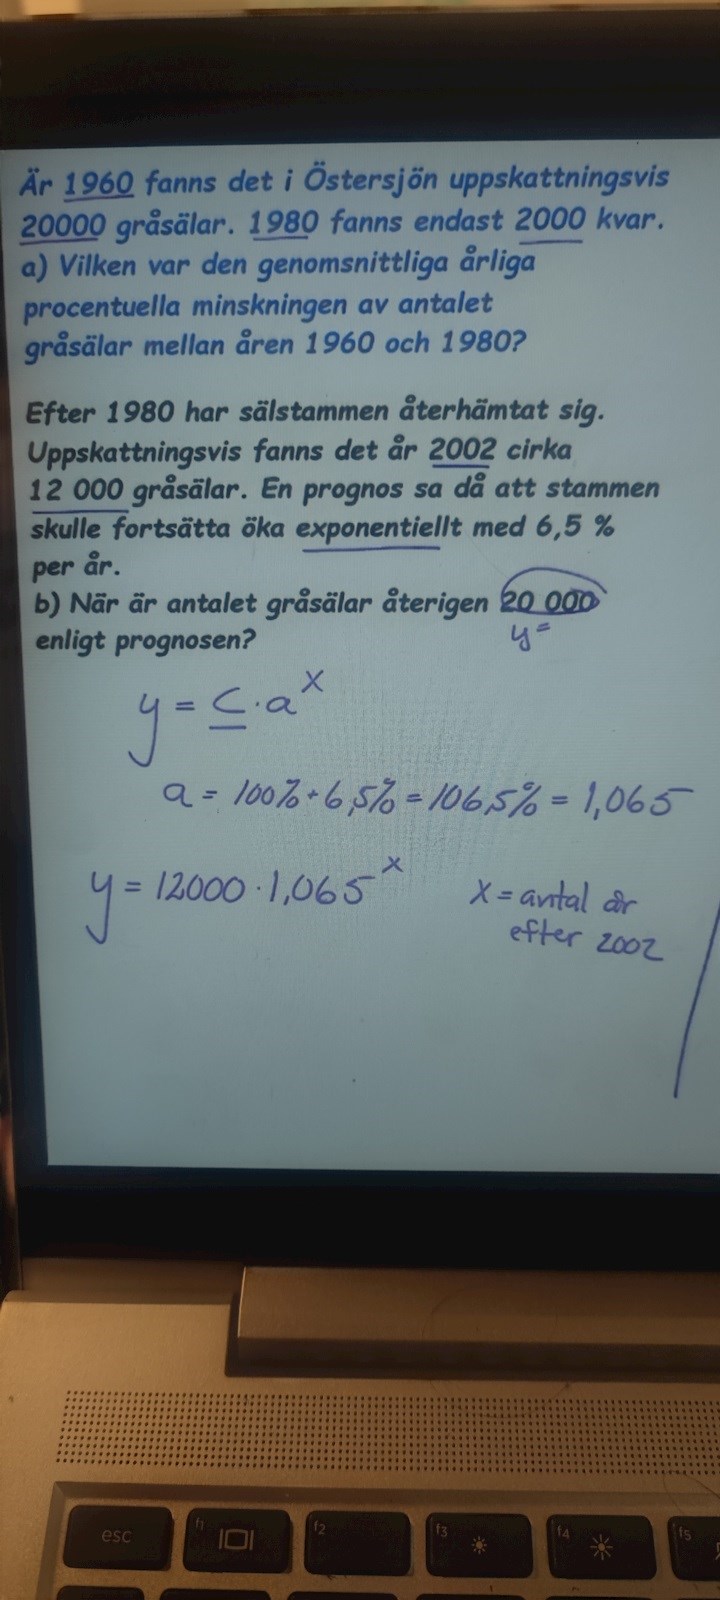 År 1960 fanns det i Östersjön uppskattningsvis
20000 gråsälar. 1980 fanns endast 2000 kvar.
a) Vilken var den genomsnittliga årliga
procentuella minskningen av antalet
gråsälar mellan åren 1960 och 1980?
Efter 1980 har sälstammen återhämtat sig.
Uppskattningsvis fanns det år 2002 cirka
12 000 gråsälar. En prognos sa då att stammen
skulle fortsätta öka exponentiellt med 6,5 %
per år.
b) När är antalet gråsälar återigen 20 000
enligt prognosen?
y=
y = C·a^x
a = 100%+6,5% = 106,5% = 1,065
y = 12000·1,065^x
x = antal år
efter 2002
esc
f1
f2
f3
f4
f5